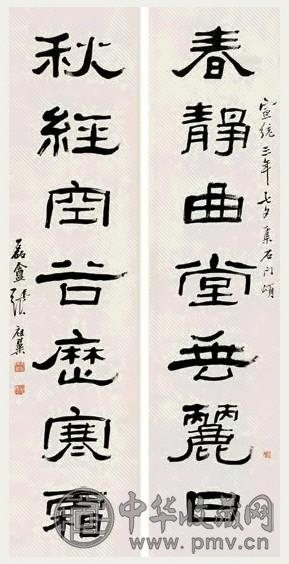 春靜曲堂垂麗日
宣統三年七夕集石門頌
秋經空谷歷寒霜
磊盦張祖翼
中华收藏网
www.pmv.cn